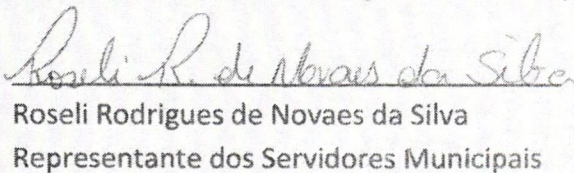 Roseli R. de Novaes da Silva
Roseli Rodrigues de Novaes da Silva
Representante dos Servidores Municipais